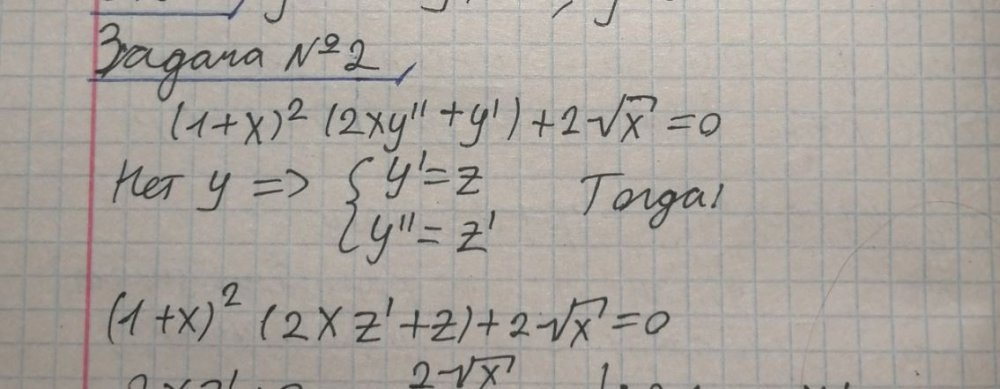 Задача №2
(1+x)² (2xy''+y') + 2√x = 0
Нет y => { y' = z Тогда:
y'' = z'
(1+x)² (2xz'+z) + 2√x = 0
2√x